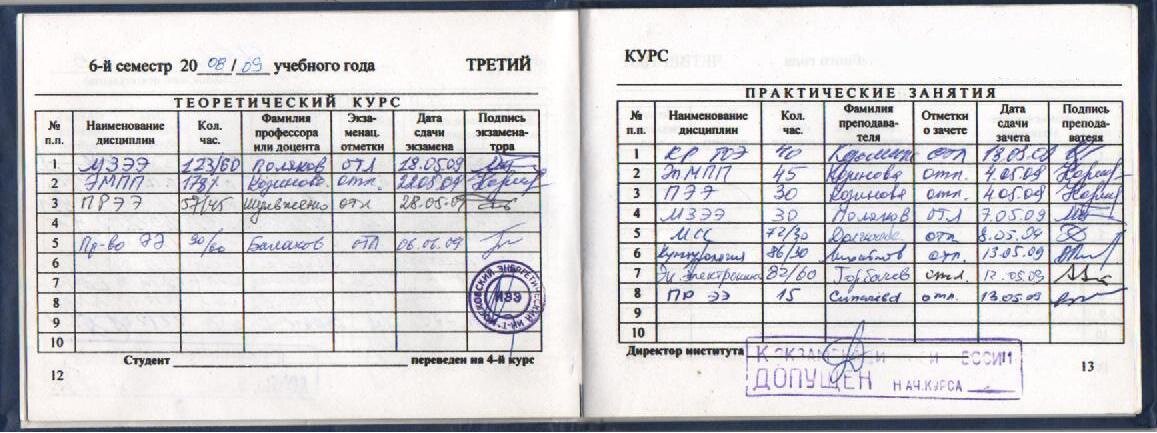 6-й семестр 20 08 / 09 учебного года ТРЕТИЙ
ТЕОРЕТИЧЕСКИЙ КУРС
№ п.п. Наименование дисциплин Кол. час. Фамилия профессора или доцента Экза-менац. отметки Дата сдачи экзамена Подпись экзамена-тора
1 МЗЭЭ 123/60 Поляков отл 18.05.09
2 ЭМПП Кодинова отл.
3 ПРЭЭ 57/45 отл 28.05.09
4
5 Пр-во ЭЭ 90/60 Балаков отл 06.06.09
6
7
8
9
10
МОСКОВСКИЙ ЭНЕРГЕТИЧЕСКИЙ ИН-Т
ИЭЭ
Студент переведен на 4-й курс
12
КУРС
ПРАКТИЧЕСКИЕ ЗАНЯТИЯ
№ п.п. Наименование дисциплин Кол. час. Фамилия преподава-теля Отметки о зачете Дата сдачи зачета Подпись препода-вателя
1 КР ТОЭ 40 отл
2 ЭМПП 45 Кодинова отл. 4.05.09
3 ПЭЭ 30 Кодинова отл. 4.05.09
4 МЗЭЭ 30 Поляков отл 7.05.09
5 МСС 72/30 отл 8.05.09
6 86/30 отл. 13.05.09
7 Эл. электроника 82/60 Горбачев отл. 12.05.09
8 ПР ЭЭ 15 отл. 13.05.09
9
10
Директор института
К ЭКЗАМЕНАЦИОННОЙ СЕССИИ
ДОПУЩЕН НАЧ.КУРСА
13